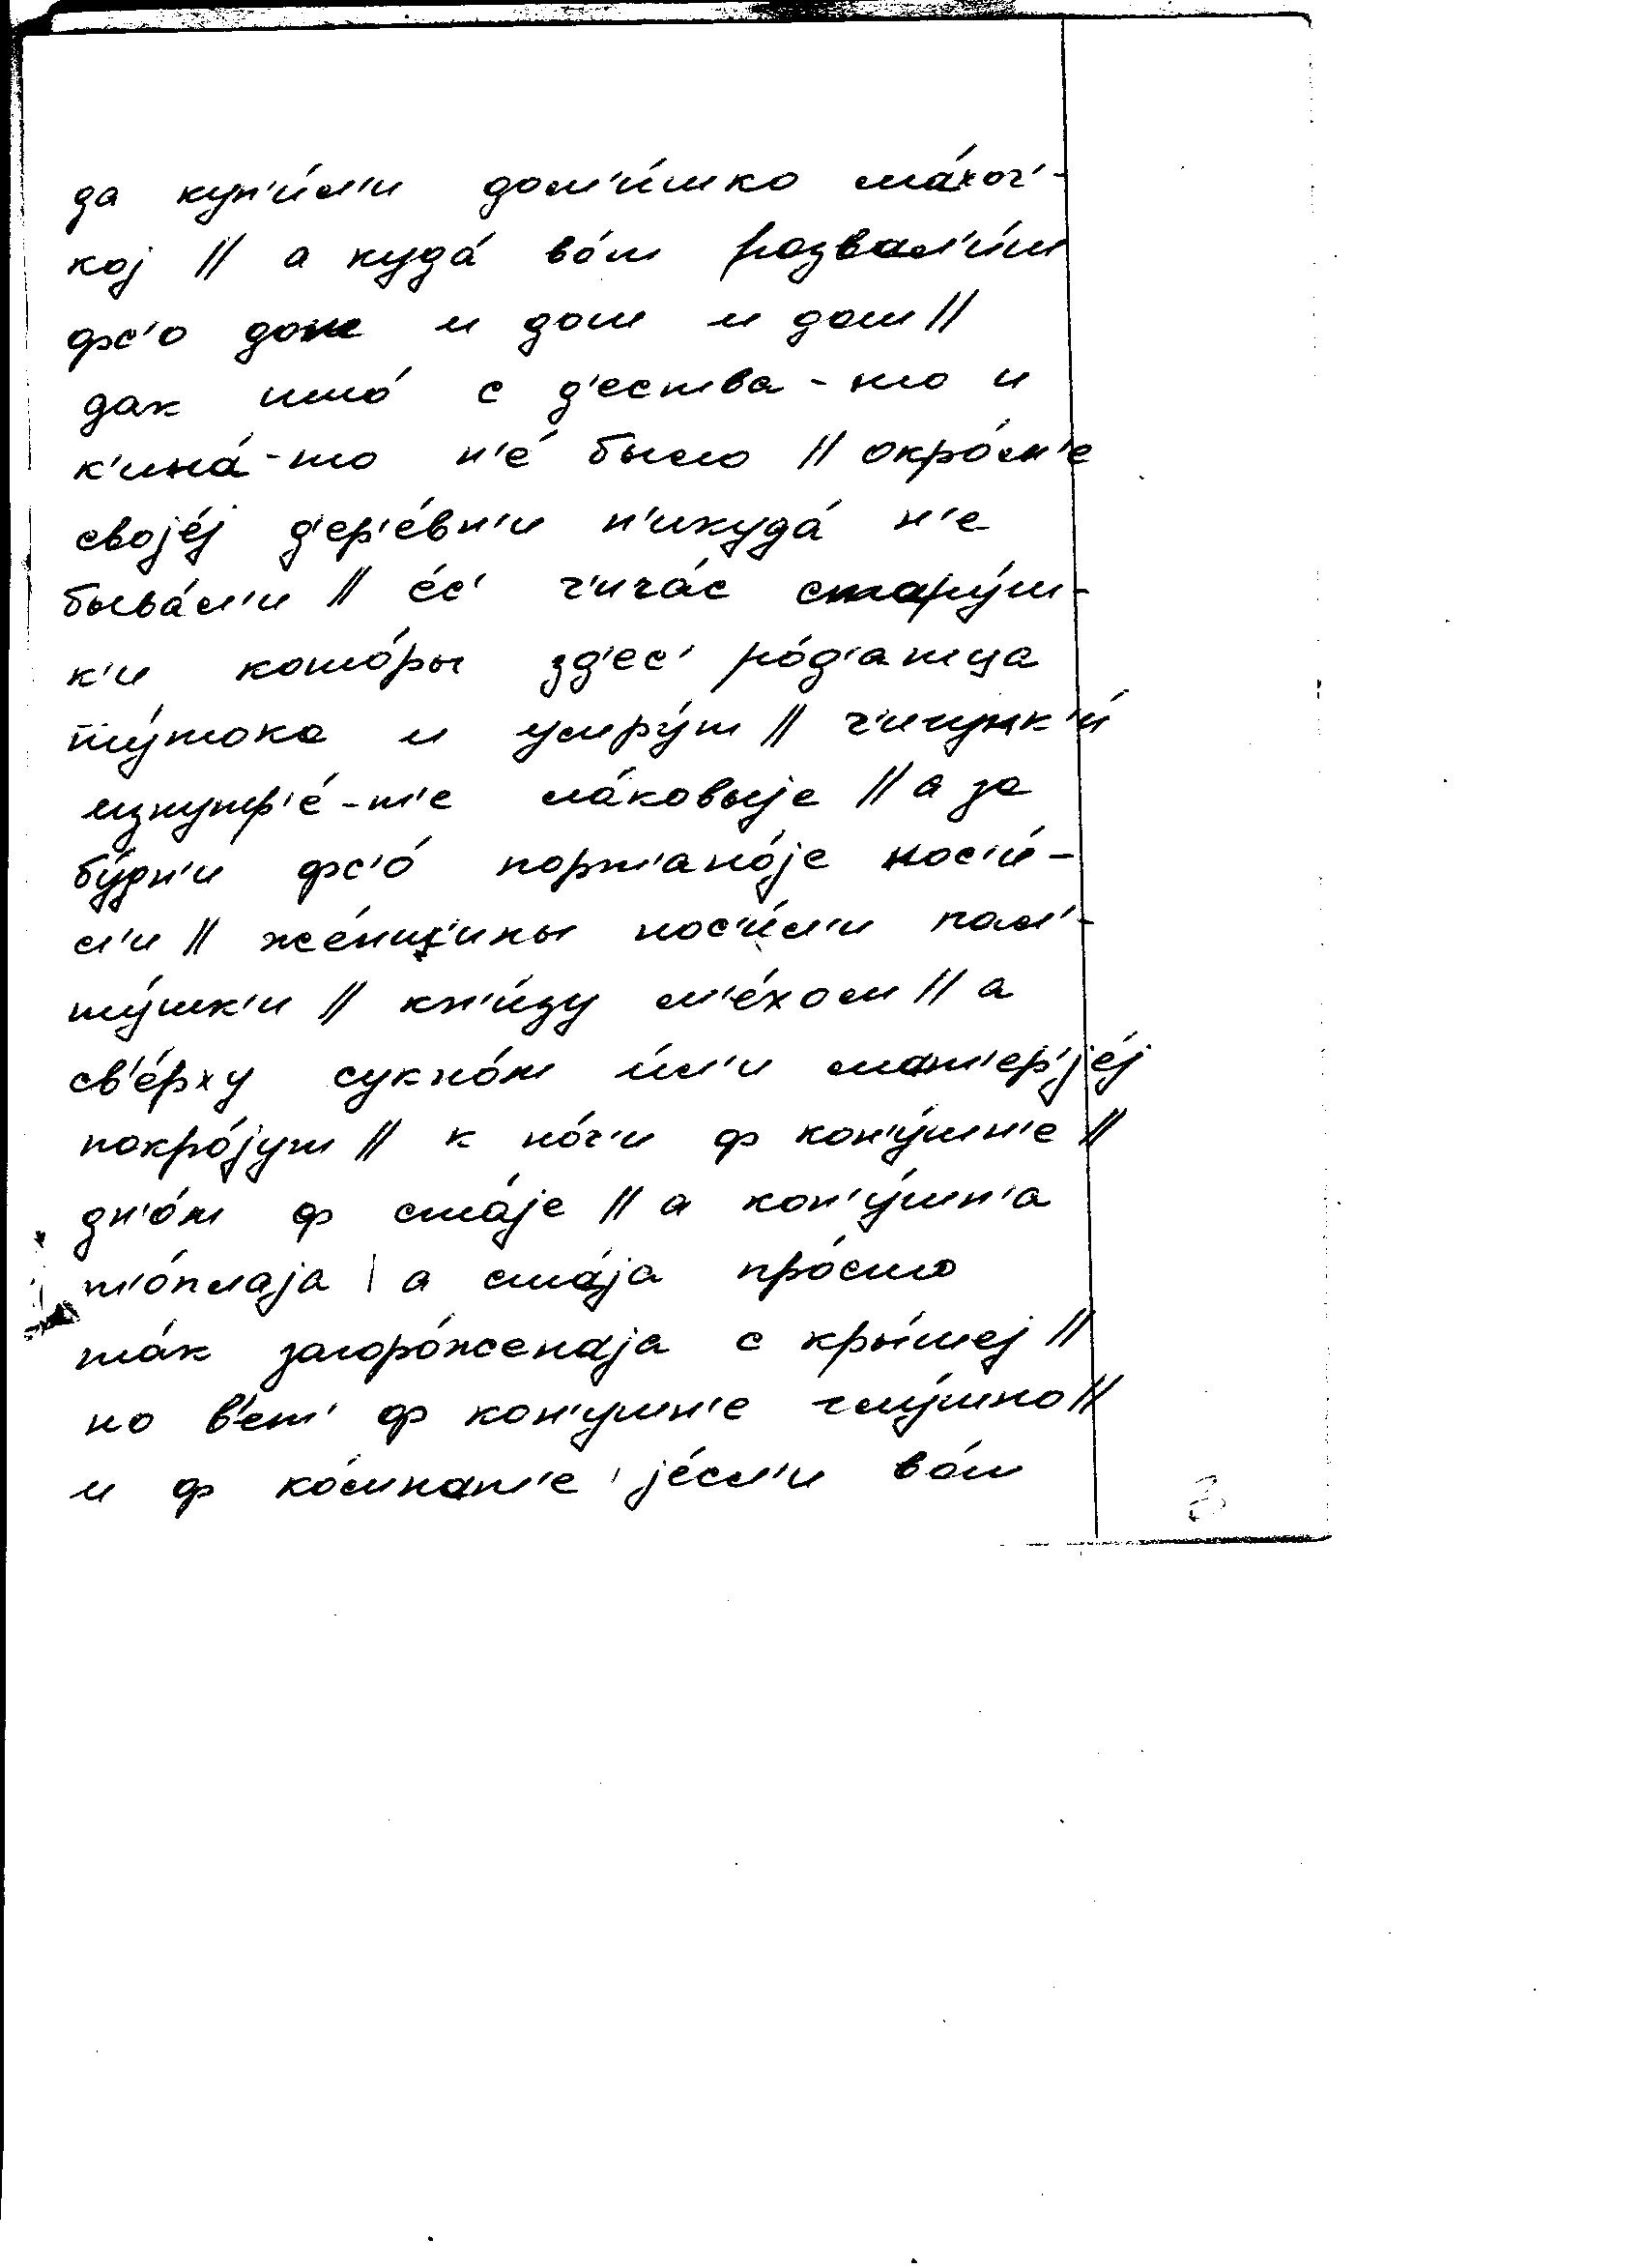 да куп'и́л'и дом'и́шко ма́хоч'-
кој // а куда́ во́т розвал'и́т
фс'о дош и дош и дош //
дак што́ с д'ества-то и
к'ина́-то н'е́ было // окро́м'е
својéј д'ер'е́вн'и н'икуда́ н'е
быва́л'и // е́с' ч'ича́с стару́ш-
к'и кото́ры зд'ес' ро́д'атца
ту́тока и умру́т // ч'ичунк'и́
изнутр'е́-т'е ла́ковыје // а за
бу́дн'и фс'о́ порт'ано́је нос'и́-
л'и // же́нщ'ины нос'и́л'и пал'-
ту́шк'и // кн'и́зу м'е́хом // а
св'е́рху сукно́м и́л'и мат'ер'је́ј
покро́јут // к но́ч'и ф кон'у́шн'е //
дн'о́м ф ста́је // а кон'у́шн'а
т'о́плаја / а ста́ја про́сто
та́к загоро́женаја с кры́шеј //
но в'ет' ф кон'ушн'е глу́шно //
и ф ко́мнат'е / јéсл'и во́т